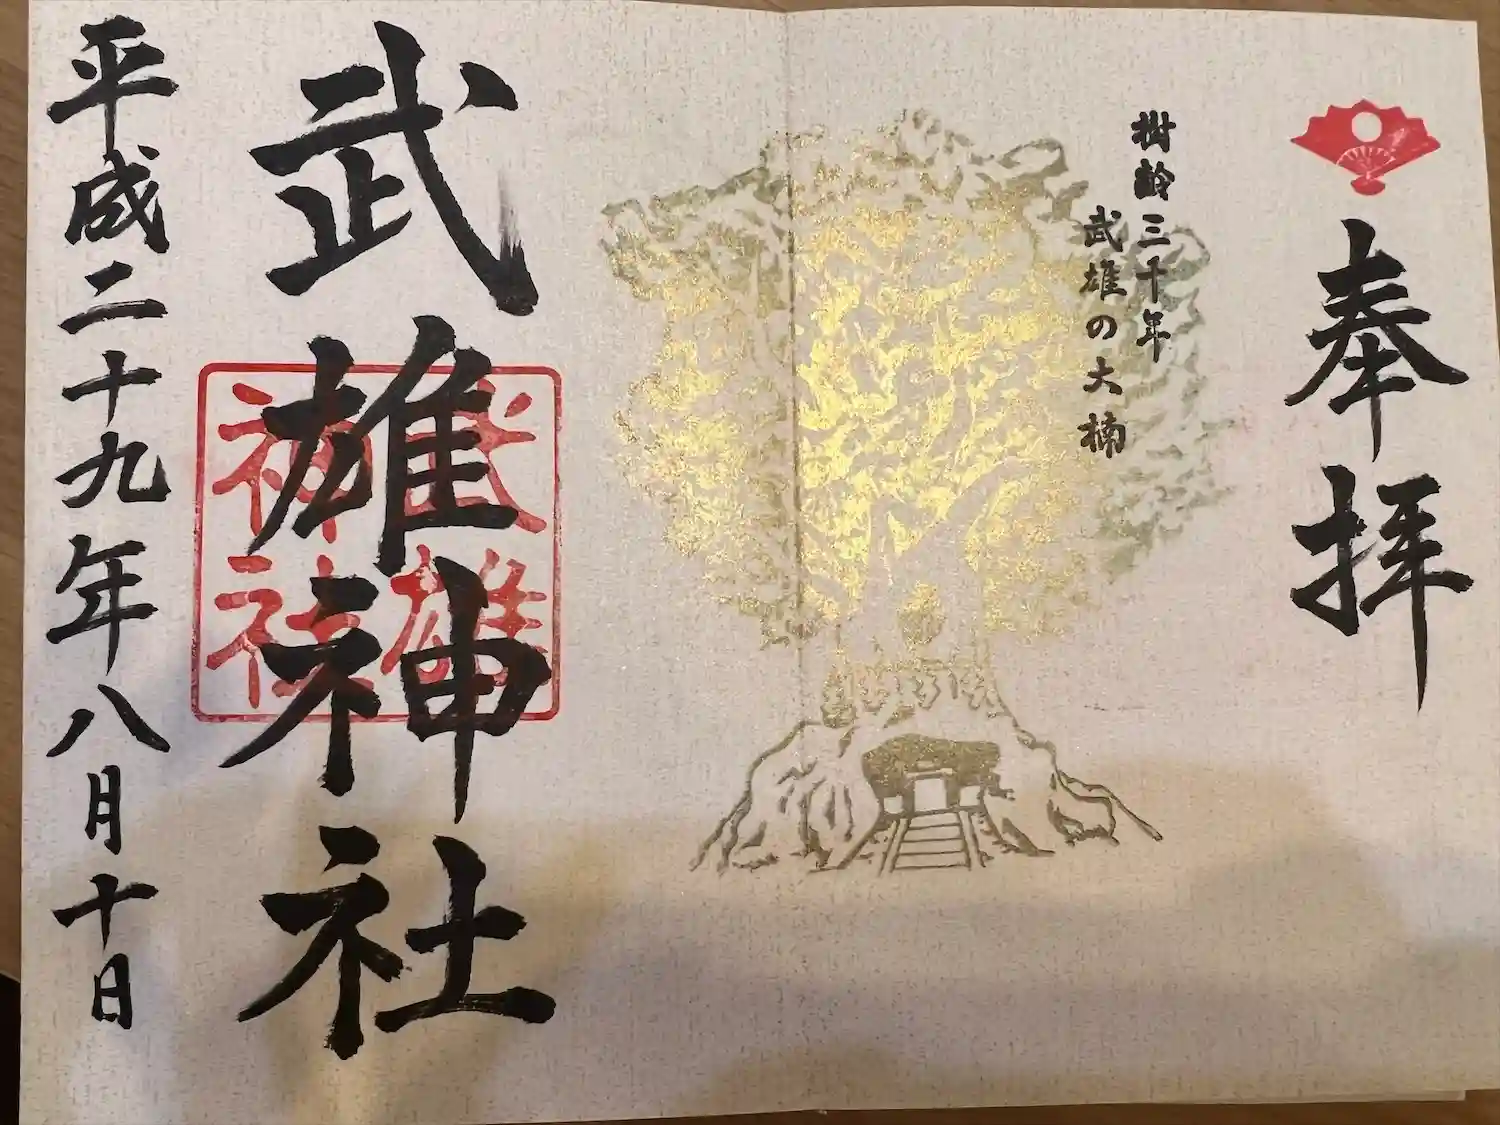 奉拝
樹齢三千年
武雄の大楠
武雄神社
武雄
神社
平成二十九年八月十日